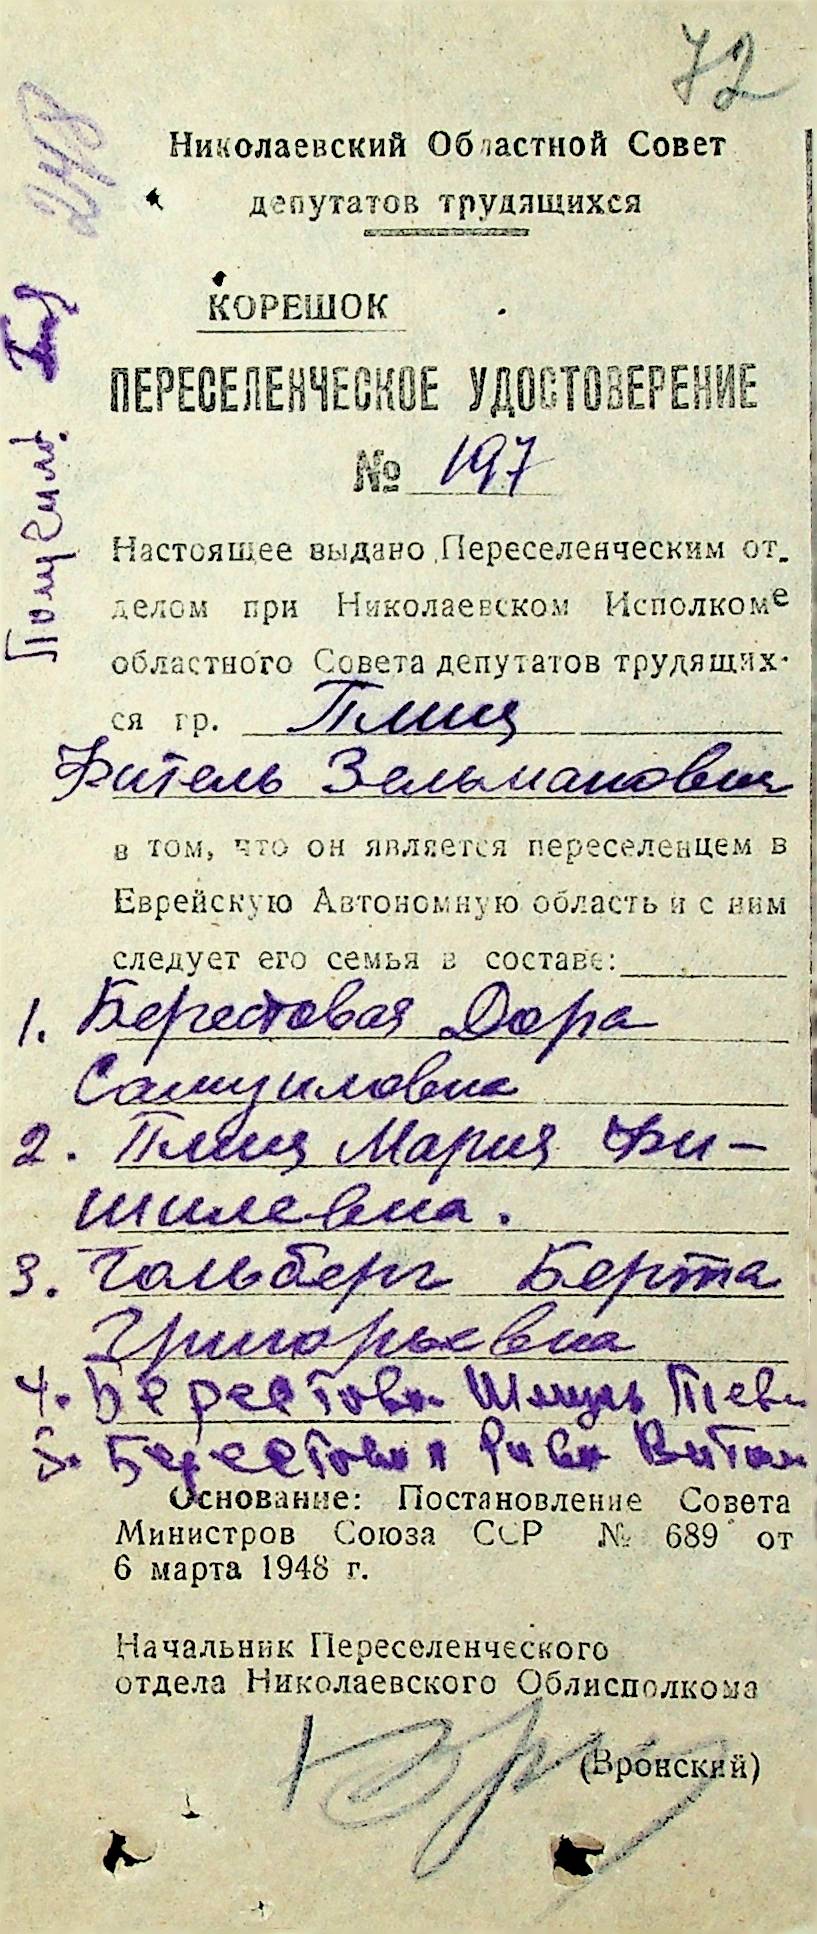 72
248
Николаевский Областной Совет
депутатов трудящихся
КОРЕШОК
ПЕРЕСЕЛЕНЧЕСКОЕ УДОСТОВЕРЕНИЕ
№ 197
Получил
Настоящее выдано Переселенческим от-
делом при Николаевском Исполкоме
областного Совета депутатов трудящих-
ся гр. Плищ
Фитель Зельманович
в том, что он является переселенцем в
Еврейскую Автономную область и с ним
следует его семья в составе:
1. Берестовая Дора
Самуиловна
2. Плищ Мария Фи-
шилевна.
3. Гольберг Берта
Григорьевна
4. Берестова Шмуль Теви
5. Берестовая Рива
Основание: Постановление Совета
Министров Союза ССР № 689 от
6 марта 1948 г.
Начальник Переселенческого
отдела Николаевского Облисполкома
(Вронский)